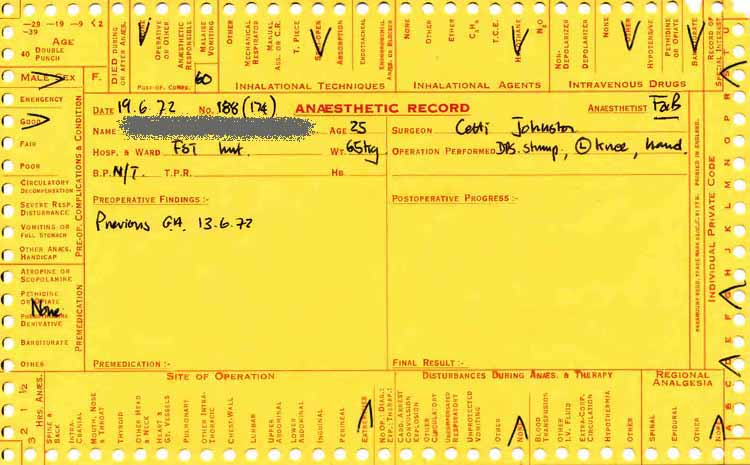 -29 -19 -9 <2
-39
AGE
40 DOUBLE PUNCH
MALE SEX F.
DIED DURING OR AFTER ANÆS.
NONE
OPERATIVE OR OTHER
ANÆSTHETIC RESPONSIBLE
MALAISE VOMITING
POST-OP. COMPS.
60
OTHER
MECHANICAL RESPIRATOR
MAN. ASS. OR C.R.
T. PIECE
ABSORPTION
ENDOTRACHEAL
INHALATIONAL TECHNIQUES
NONE
OTHER
ETHER
C₃H₆
T.C.E.
HALOTHANE
N₂O
INHALATIONAL AGENTS
NON-DEPOLARIZER
DEPOLARIZER
NONE
OTHER
HYPOTENSIVE
PETHIDINE OR OPIATE
BARBITURATE
INTRAVENOUS DRUGS
RECORD OF SPECIAL INTEREST
EMERGENCY
GOOD
FAIR
POOR
CIRCULATORY DECOMPENSATION
SEVERE RESP. DISTURBANCE
VOMITING OR FULL STOMACH
OTHER ANÆS. HANDICAP
PRE-OP. COMPLICATIONS & CONDITION
ATROPINE OR SCOPOLAMINE
PETHIDINE OR OPIATE
None
DERIVATIVE
BARBITURATE
OTHER
PREMEDICATION
DATE 19.6.72 NO. 188(174) ANÆSTHETIC RECORD ANÆSTHETIST F&B
NAME AGE 25 SURGEON Cetti Johnston
HOSP. & WARD FST hut WT. 65kg OPERATION PERFORMED DPS. stump, Ⓛ knee, hand.
B.P. N/T. T.P.R. HB
PREOPERATIVE FINDINGS :- POSTOPERATIVE PROGRESS :-
Previous G.A. 13.6.72
PREMEDICATION :- FINAL RESULT :-
PRINTED IN ENGLAND.
INDIVIDUAL PRIVATE CODE
A B C D E F G H J K L M N O P R S T U
3 2 1 ½
HRS. ANÆS.
SITE OF OPERATION
SPINE & BACK
INTRA-CRANIAL
MOUTH, NOSE & THROAT
THYROID
OTHER HEAD & NECK
HEART & GT. VESSELS
PULMONARY
OTHER INTRA-THORACIC
CHEST-WALL
LUMBAR
UPPER ABDOMINAL
LOWER ABDOMINAL
INGUINAL
PERINEAL
EXTREMITIES
NO OP., DIAG., EXP., THERAP.:
DISTURBANCES DURING ANÆS. & THERAPY
CARD. ARREST
CONVULSION EXPLOSION
OTHER CIRCULATORY
UNSUPPRESSED RESPIRATORY
UNPROTECTED VOMITING
OTHER
NONE
BLOOD TRANSFUSION
OTHER I.V. FLUID
EXTRA-CORP. CIRCULATION
HYPOTHERMIA
OTHER
REGIONAL ANALGESIA
SPINAL
EPIDURAL
OTHER